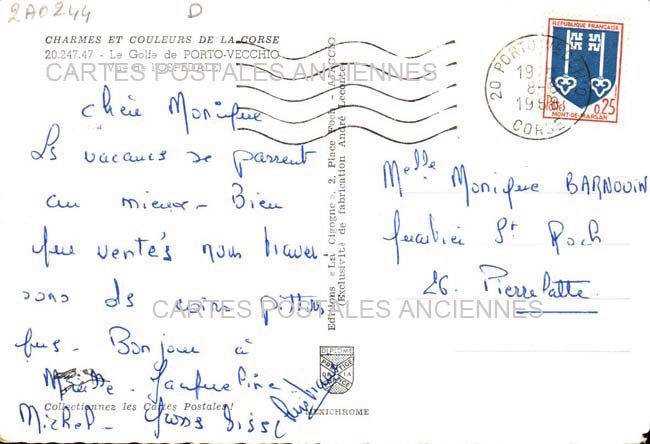 2A0244 D
CHARMES ET COULEURS DE LA CORSE
20.247.47 - Le Golfe de PORTO-VECCHIO
CARTES POSTALES ANCIENNES
Chère Monique
Les vacances se passent
au mieux - Bien
que ventés nous traver-
sons des coins pittores
ques - Bonjour à
Jacqueline
Michel - Gross bisse
Collectionnez les Cartes Postales !
Editions « La Cigogne », 2, Place Foch - AJACCIO
(Exclusivité de fabrication André Leconte)
DIPLOME
PRESTIGE
DE LA
FRANCE
MEXICHROME
RÉPUBLIQUE FRANÇAISE
POSTES
0,25
MONT-DE-MARSAN
20 PORTO-VECCHIO
CORSE
Melle Monique BARNOUIN
Quartier St Roch
26. Pierrelatte.
CARTES POSTALES ANCIENNES